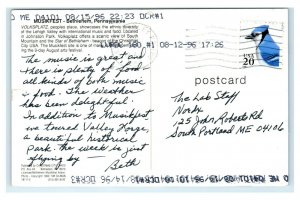 ME 04101 08/15/96 22:23 DCR#1
MUSIKFEST - Bethlehem, Pennsylvania
VOLKSPLATZ, peoples place, showcases the ethnic diversity of
the Lehigh Valley with international music and food. Located
Johnston Park, Volksplatz offers a scenic view of South
Mountain and the Star of Bethlehem - beacon of the Christmas
City USA. The Musikfest site is one of many
the 9-day August arts festival.
#1 08-12-96 17:26
The music is great and
there is plenty of food -
all kinds of both music
& food. The weather
has been delightful.
In addition to Musikfest
we toured Valley Forge,
a beautiful historical
Park. The week is just
flying by —
Beth
USA
20
postcard
The Lab Staff
Norby
25 John Roberts Rd
South Portland ME 04106
08/14/96 DCR#3